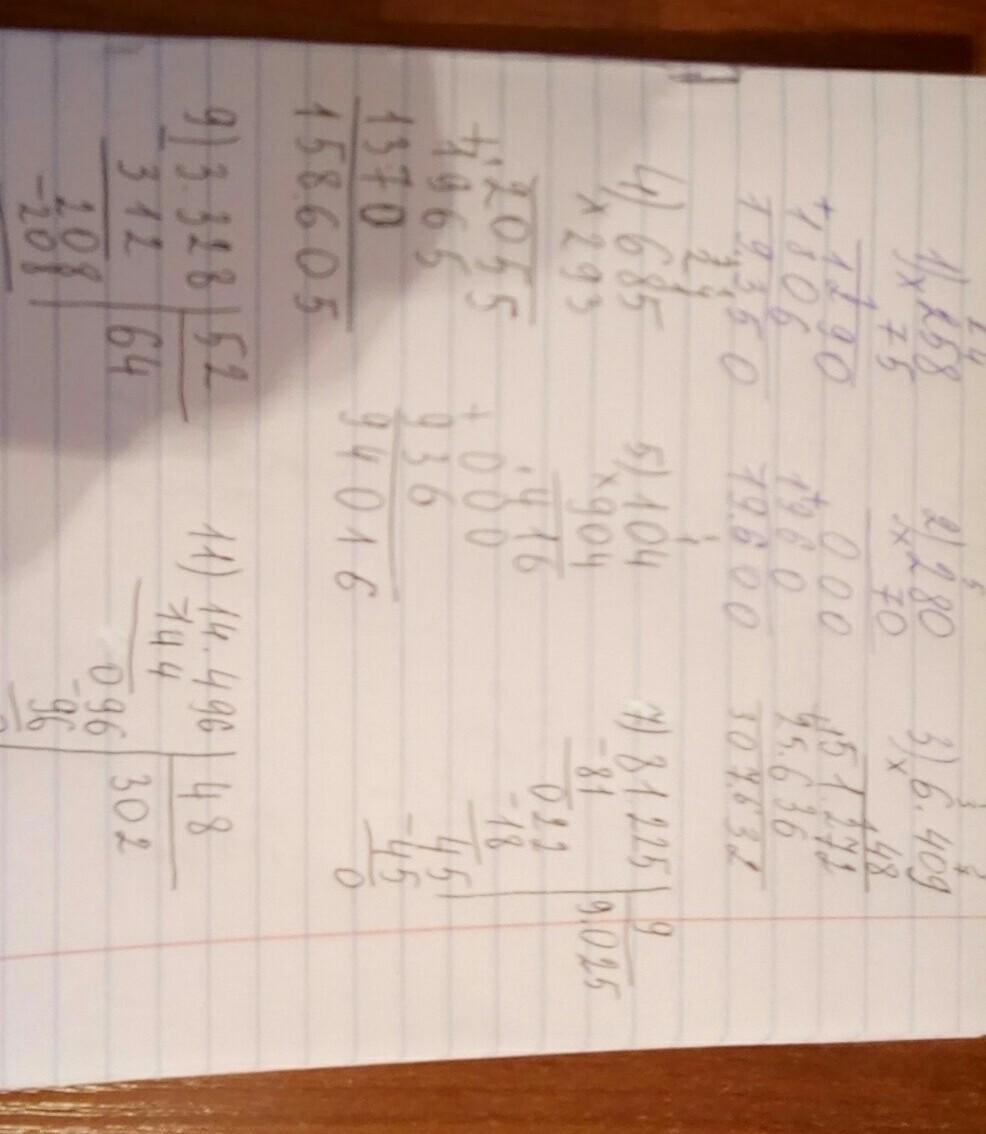 2 4
1) 258
x 75
1290
+1806
19350
5
2) 280
x 70
000
+1960
19.600
3
3) 6.409
x 48
51.272
25.636
307.632
4) 685
x 293
2055
+4965
1370
158.605
1
5) 104
x 904
416
+000
936
94016
7) 81.225 | 9
-81 9.025
022
-18
45
-45
0
9) 3.328 | 52
312 64
208
-208
11) 14.496 | 48
-144 302
096
-96